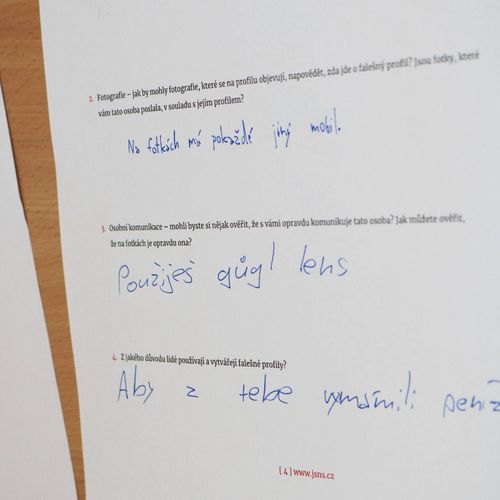 2. Fotografie – jak by mohly fotografie, které se na profilu objevují, napovědět, zda jde o falešný profil? Jsou fotky, které
vám tato osoba poslala, v souladu s jejím profilem?
Na fotkách má pokaždé jiný mobil.
3. Osobní komunikace – mohli byste si nějak ověřit, že s vámi opravdu komunikuje tato osoba? Jak můžete ověřit,
že na fotkách je opravdu ona?
Použiješ gůgl lens
4. Z jakého důvodu lidé používají a vytvářejí falešné profily?
Aby z tebe vymámili peníz
[ 4 ] www.jsns.cz